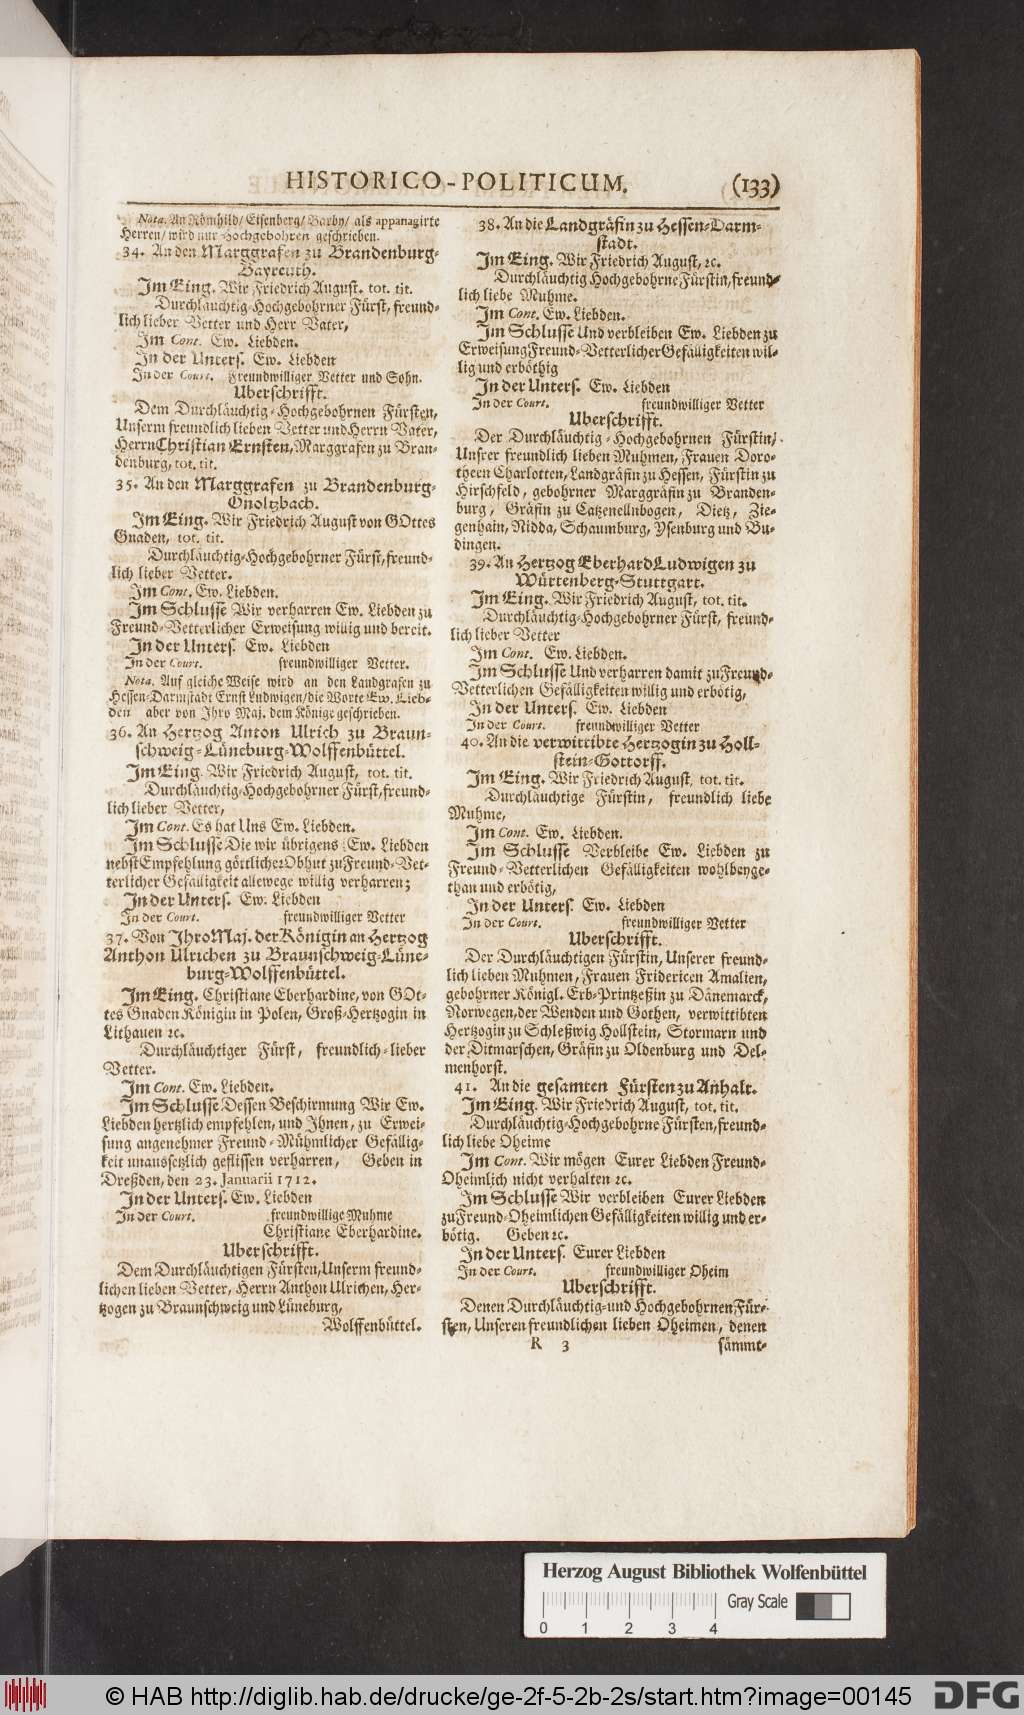 HISTORICO-POLITICUM. (133)
Nota. An Römhild/ Eisenberg/ Barby/ als appanagirte
Herren/ wird nur Hochgebohren geschrieben.
34. An den Marggrafen zu Brandenburg-
Bayreuth.
Im Eing. Wir Friedrich August. tot. tit.
Durchläuchtig-Hochgebohrner Fürst, freund-
lich lieber Vetter und Herr Vater,
Im Cont. Ew. Liebden.
In der Unters. Ew. Liebden
In der Court. Freundwilliger Vetter und Sohn.
Uberschrifft.
Dem Durchläuchtig-Hochgebohrnen Fürsten,
Unserm freundlich lieben Vetter und Herrn Vater,
Herrn Christian Ernsten, Marggrafen zu Bran-
denburg, tot. tit.
35. An den Marggrafen zu Brandenburg-
Onoltzbach.
Im Eing. Wir Friedrich August von GOttes
Gnaden, tot. tit.
Durchläuchtig-Hochgebohrner Fürst, freund-
lich lieber Vetter.
Im Cont. Ew. Liebden.
Im Schlusse Wir verharren Ew. Liebden zu
Freund-Vetterlicher Erweisung willig und bereit.
In der Unters. Ew. Liebden
In der Court. freundwilliger Vetter.
Nota. Auf gleiche Weise wird an den Landgrafen zu
Hessen-Darmstadt Ernst Ludwigen/ die Worte Ew. Lieb-
den aber von Ihro Maj. dem Könige geschrieben.
36. An Hertzog Anton Ulrich zu Braun-
schweig-Lüneburg-Wolffenbüttel.
Im Eing. Wir Friedrich August, tot. tit.
Durchläuchtig-Hochgebohrner Fürst, freund-
lich lieber Vetter,
Im Cont. Es hat Uns Ew. Liebden.
Im Schlusse Die wir übrigens Ew. Liebden
nebst Empfehlung göttlicher Obhut zu Freund-Vet-
terlicher Gefälligkeit allewege willig verharren;
In der Unters. Ew. Liebden
In der Court. freundwilliger Vetter
37. Von Ihro Maj. der Königin an Hertzog
Anthon Ulrichen zu Braunschweig-Lüne-
burg-Wolffenbüttel.
Im Eing. Christiane Eberhardine, von GOt-
tes Gnaden Königin in Polen, Groß-Hertzogin in
Lithauen ꝛc.
Durchläuchtiger Fürst, freundlich-lieber
Vetter.
Im Cont. Ew. Liebden.
Im Schlusse Dessen Beschirmung Wir Ew.
Liebden hertzlich empfehlen, und Ihnen, zu Erwei-
sung angenehmer Freund-Mühmlicher Gefällig-
keit unaussetzlich geflissen verharren, Geben in
Dreßden, den 23. Januarii 1712.
In der Unters. Ew. Liebden
In der Court. freundwillige Muhme
Christiane Eberhardine.
Uberschrifft.
Dem Durchläuchtigen Fürsten, Unserm freund-
lichen lieben Vetter, Herrn Anthon Ulrichen, Her-
tzogen zu Braunschweig und Lüneburg,
Wolffenbüttel.
38. An die Landgräfin zu Hessen-Darm-
stadt.
Im Eing. Wir Friedrich August, ꝛc.
Durchläuchtig Hochgebohrne Fürstin, freund-
lich liebe Muhme.
Im Cont. Ew. Liebden.
Im Schlusse Und verbleiben Ew. Liebden zu
Erweisung Freund-Vetterlicher Gefälligkeiten wil-
lig und erböthig
In der Unters. Ew. Liebden
In der Court. freundwilliger Vetter
Uberschrifft.
Der Durchläuchtig-Hochgebohrnen Fürstin,
Unsrer freundlich lieben Muhmen, Frauen Doro-
theen Charlotten, Landgräfin zu Hessen, Fürstin zu
Hirschfeld, gebohrner Marggräfin zu Branden-
burg, Gräfin zu Catzenellnbogen, Dietz, Zie-
genhain, Nidda, Schaumburg, Ysenburg und Bu-
dingen.
39. An Hertzog Eberhard Ludwigen zu
Würtenberg-Stuttgart.
Im Eing. Wir Friedrich August, tot. tit.
Durchläuchtig-Hochgebohrner Fürst, freund-
lich lieber Vetter
Im Cont. Ew. Liebden.
Im Schlusse Und verharren damit zu Freund-
Vetterlichen Gefälligkeiten willig und erbötig,
In der Unters. Ew. Liebden
In der Court. freundwilliger Vetter
40. An die verwittibte Hertzogin zu Holl-
stein-Gottorff.
Im Eing. Wir Friedrich August, tot. tit.
Durchläuchtige Fürstin, freundlich liebe
Muhme,
Im Cont. Ew. Liebden.
Im Schlusse Verbleibe Ew. Liebden zu
Freund-Vetterlichen Gefälligkeiten wohlbeyge-
than und erbötig,
In der Unters. Ew. Liebden
In der Court. freundwilliger Vetter
Uberschrifft.
Der Durchläuchtigen Fürstin, Unserer freund-
lich lieben Muhmen, Frauen Fridericen Amalien,
gebohrner Königl. Erb-Printzeßin zu Dänemarck,
Norwegen, der Wenden und Gothen, verwittibten
Hertzogin zu Schleßwig Hollstein, Stormarn und
der Ditmarschen, Gräfin zu Oldenburg und Del-
menhorst.
41. An die gesamten Fürsten zu Anhalt.
Im Eing. Wir Friedrich August, tot. tit.
Durchläuchtig-Hochgebohrne Fürsten, freund-
lich liebe Oheime
Im Cont. Wir mögen Eurer Liebden Freund-
Oheimlich nicht verhalten ꝛc.
Im Schlusse Wir verbleiben Eurer Liebden
zu Freund-Oheimlichen Gefälligkeiten willig und er-
bötig. Geben ꝛc.
In der Unters. Eurer Liebden
In der Court. freundwilliger Oheim
Uberschrifft.
Denen Durchläuchtig-und Hochgebohrnen Für-
sten, Unseren freundlichen lieben Oheimen, denen
R 3 sämmt-
Herzog August Bibliothek Wolfenbüttel
Gray Scale
0 1 2 3 4
© HAB http://diglib.hab.de/drucke/ge-2f-5-2b-2s/start.htm?image=00145
DFG